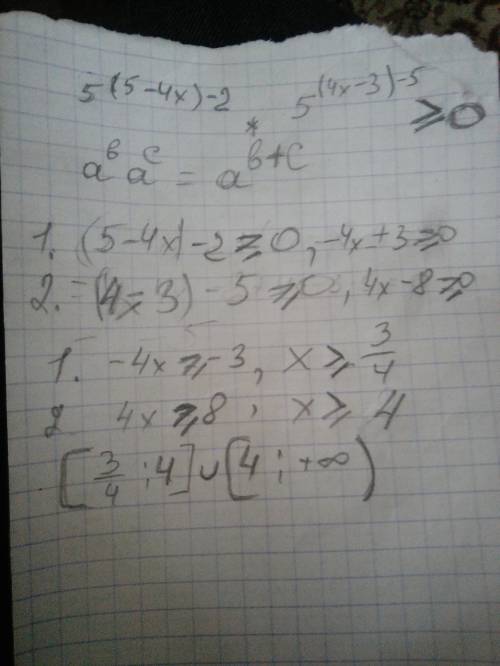 5^(5-4x)-2 * 5^(4x-3)-5 ≥ 0
a^b a^c = a^b+c
1. (5-4x)-2 ≥ 0, -4x+3 ≥ 0
2. (4x-3)-5 ≥ 0, 4x-8 ≥ 0
1. -4x ≥ -3, x ≥ 3/4
2 4x ≥ 8, x ≥ 4
[3/4; 4] ∪ [4; +∞)